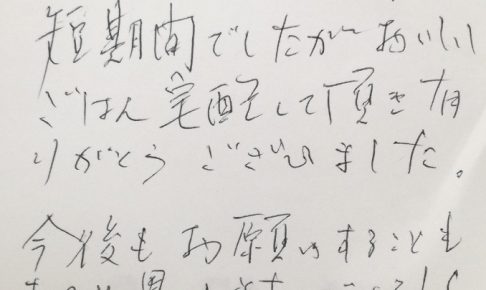 短期間でしたがおいしい
ごはん宅配して頂き有
りがとうございました。
今後もお願いすることも